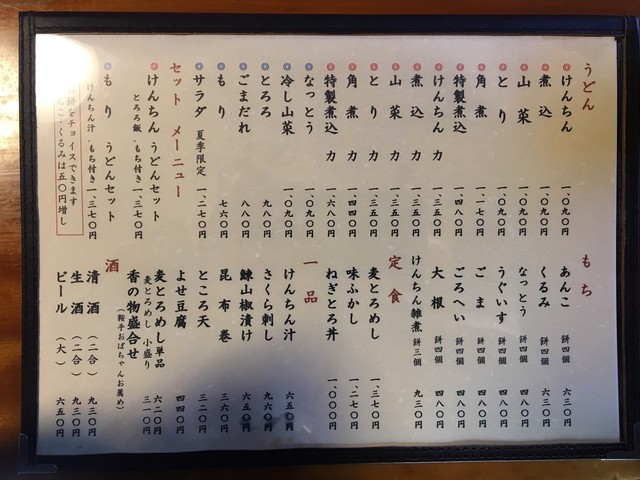 うどん
けんちん 一、〇九〇円
煮込 一、〇九〇円
山菜 一、〇九〇円
とり 一、〇九〇円
角煮 一、一七〇円
特製煮込 一、四八〇円
けんちん 力 一、三五〇円
煮込 力 一、三五〇円
山菜 力 一、三五〇円
とり 力 一、三五〇円
角煮 力 一、四四〇円
特製煮込 力 一、六八〇円
なっとう 一、〇九〇円
冷し山菜 一、〇九〇円
とろろ 九八〇円
ごまだれ 八八〇円
もり 七六〇円
サラダ 夏季限定 一、二七〇円
セット メニュー
けんちん うどんセット
とろろ飯、もち付き 一、三七〇円
もり うどんセット
けんちん汁、もち付き 一、三七〇円
餅をチョイスできます
あんこ・くるみは五〇円増し
もち
あんこ 餅四個 六三〇円
くるみ 餅四個 六三〇円
なっとう 餅四個 四八〇円
うぐいす 餅四個 四八〇円
ごま 餅四個 四八〇円
ごろへい 餅四個 四八〇円
大根 餅四個 四八〇円
けんちん雑煮 餅三個 九三〇円
定食
麦とろめし 一、三七〇円
味ふかし 一、二七〇円
ねぎとろ丼 一、〇〇〇円
一品
けんちん汁 六五〇円
さくら刺し 九六〇円
鰊山椒漬け 六五〇円
昆布巻 三六〇円
ところ天 三二〇円
よせ豆腐 四四〇円
麦とろめし単品 六二〇円
麦とろめし 小盛り 三一〇円
香の物盛合せ
（鞍手おばちゃんお薦め）
酒
清酒（二合） 九三〇円
生酒（二合） 九三〇円
ビール（大） 六五〇円